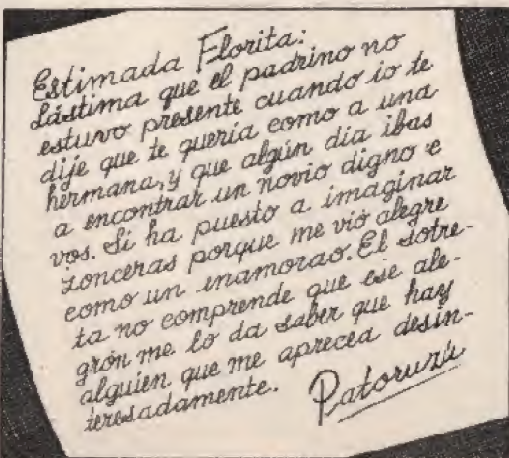 Estimada Florita:
Lástima que el padrino no
estuvo presente cuando io te
dije que te quería como a una
hermana, y que algún día ibas
a encontrar un novio digno e
vos. Si ha puesto a imaginar
zonceras porque me vió alegre
como un inamorao. El sotre-
ta no comprende que ese ale-
grón me lo da saber que hay
alguien que me aprecea desin-
teresadamente.
Patoruzú